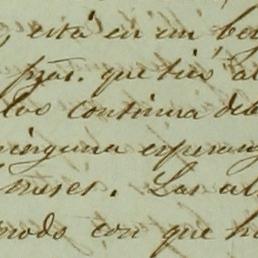 está en un be
que
los continua de
ninguna esperanz
meses. Las al
modo con que h